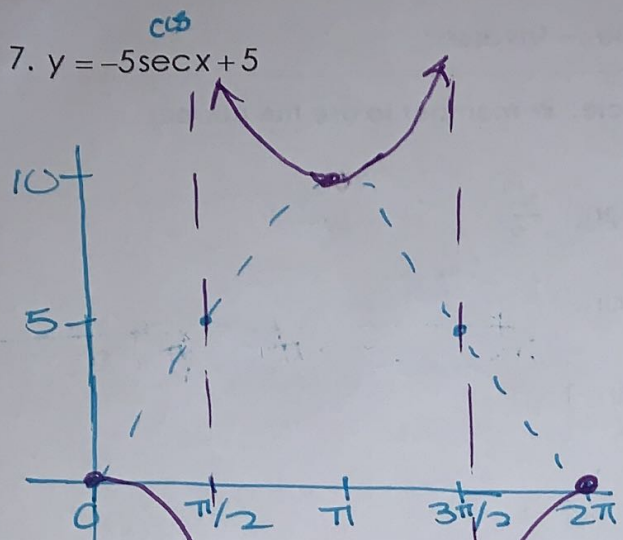 cos
7. y = -5secx + 5
10
5
0 π/2 π 3π/2 2π